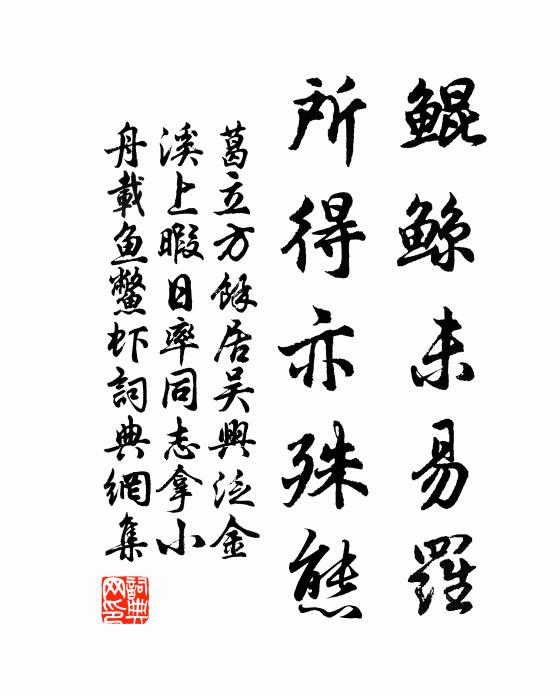 鯤鯨未易羅
所得亦殊態
葛立方餘居吳興泛金
溪上暇日率同志拿小
舟載魚鱉虾詞典網集
詞典